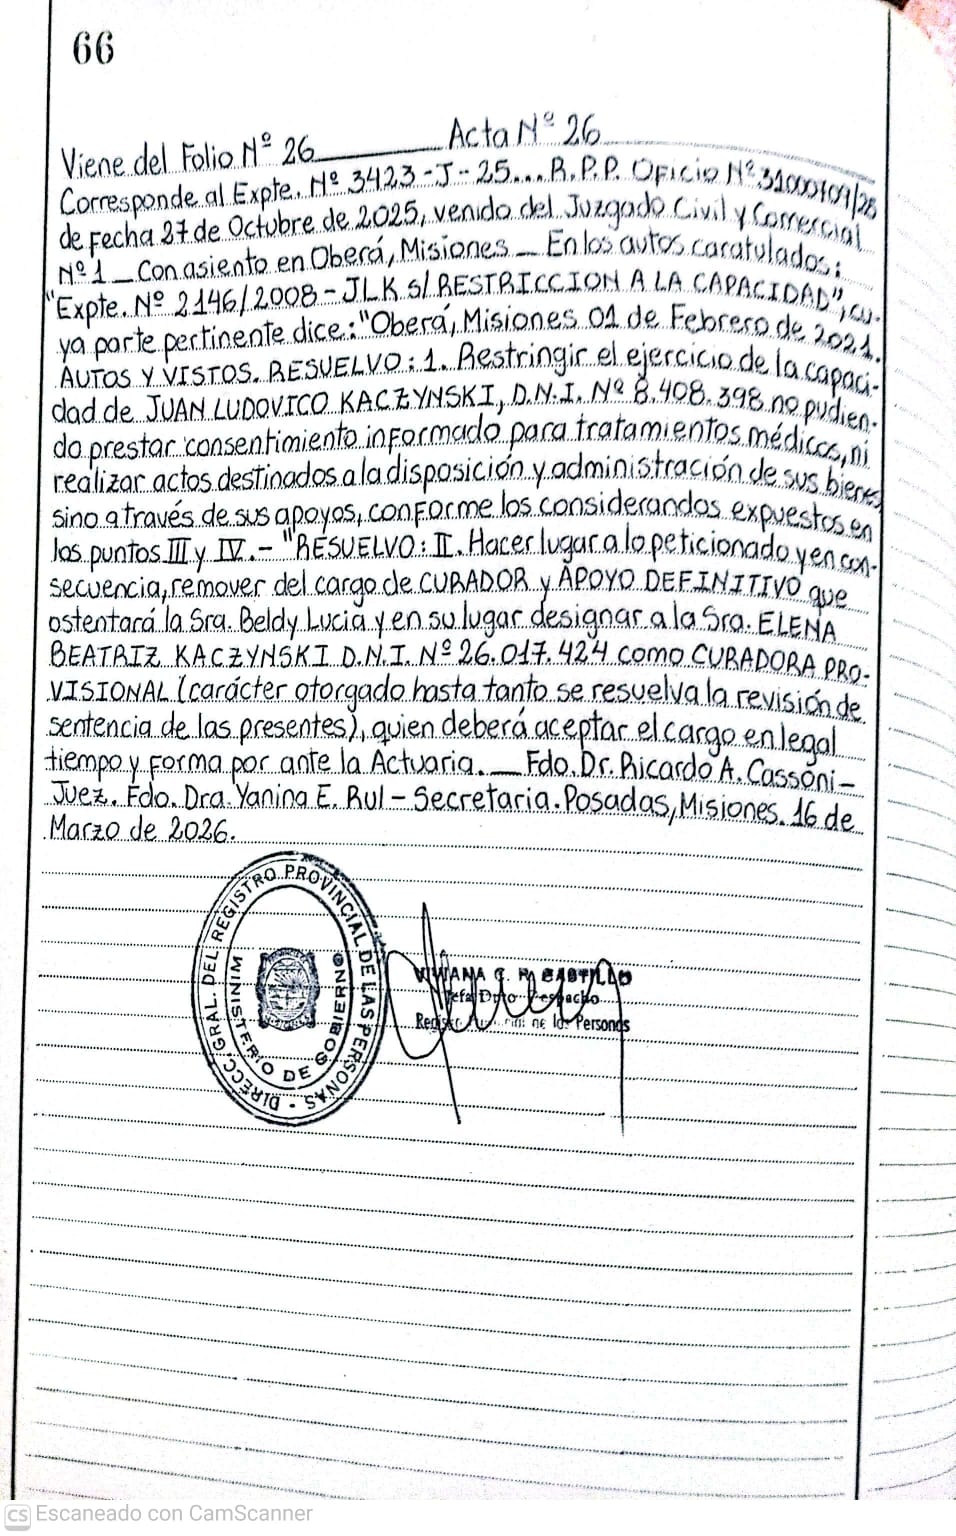 66
Viene del Folio Nº 26 Acta Nº 26
Corresponde al Expte. Nº 3423-J-25... R.P.P. Oficio Nº
de Fecha 27 de Octubre de 2025, venido del Juzgado Civil y Comercial
Nº 1 _ Con asiento en Oberá, Misiones _ En los autos caratulados:
"Expte. Nº 2146/2008 - JLK s/ RESTRICCION A LA CAPACIDAD", cu-
ya parte pertinente dice: "Oberá, Misiones 01 de Febrero de 2021.
AUTOS Y VISTOS. RESUELVO: 1. Restringir el ejercicio de la capaci-
dad de JUAN LUDOVICO KACZYNSKI, D.N.I. Nº 8.408.398 no pudien-
do prestar consentimiento informado para tratamientos médicos, ni
realizar actos destinados a la disposición y administración de sus bienes
sino a través de sus apoyos, conforme los considerandos expuestos en
los puntos III y IV.- "RESUELVO: II. Hacer lugar a lo peticionado y en con-
secuencia, remover del cargo de CURADOR y APOYO DEFINITIVO que
ostentará la Sra. Beldy Lucia y en su lugar designar a la Sra. ELENA
BEATRIZ KACZYNSKI D.N.I. Nº 26.017.424 como CURADORA PRO-
VISIONAL (carácter otorgado hasta tanto se resuelva la revisión de
sentencia de las presentes), quien deberá aceptar el cargo en legal
tiempo y forma por ante la Actuaria. _ Fdo. Dr. Ricardo A. Cassoni-
Juez. Fdo. Dra. Yanina E. Rul - Secretaria. Posadas, Misiones. 16 de
Marzo de 2026.
DIRECC. GRAL. DEL REGISTRO PROVINCIAL DE LAS PERSONAS -
MINISTERIO DE GOBIERNO
VIVIANA CASTILLO
Jefa Dpto Despacho
de las Personas
CS Escaneado con CamScanner